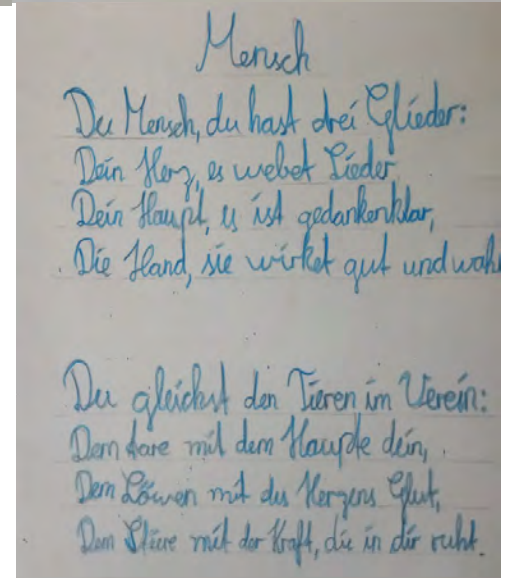 Mensch
Du Mensch, du hast drei Glieder:
Dein Herz, es webet Lieder
Dein Haupt, es ist gedankenklar,
Die Hand, sie wirket gut und wah
Du gleichst den Tieren im Verein:
Dem Aare mit dem Haupte dein,
Dem Löwen mit des Herzens Glut,
Dem Stiere mit der Kraft, die in dir ruht.